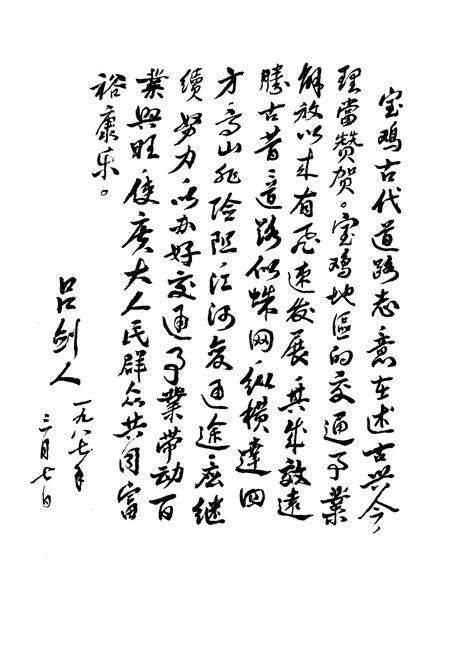 宝鸡古代道路志意在述古兴今，
理當赞贺。宝鸡地區的交通事業
解放以来有飞速发展，其成效遠
勝古昔，道路似蛛网，纵横達四
方，高山非險阻，江河变通途，应继
續努力，以办好交通事業带动百
業興旺，使廣大人民群众共同富
裕康乐。
吕剑人
一九八七年
三月七日